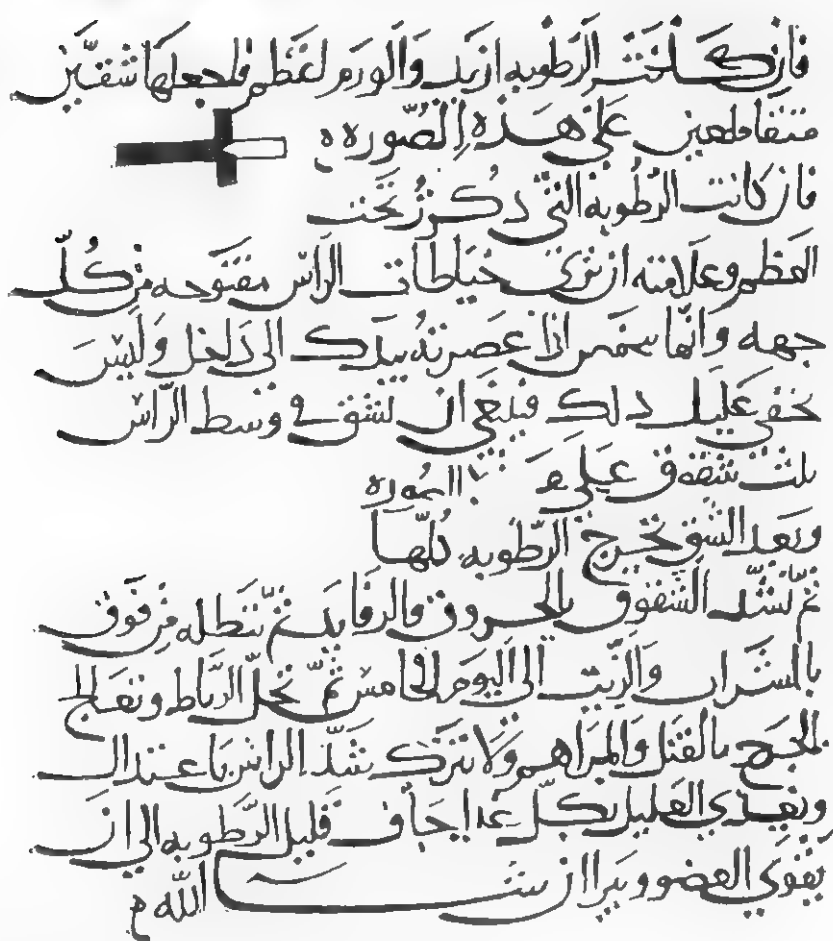 فان كانت الرطوبه ازيد والورم اعظم فلجعلها شقين
متقاطعين على هذه الصوره
فان كانت الرطوبه التي ذكرت تحت
العظم وعلامته ان ترى خياطات الراس مفتوحه من كل
جهه وانها تنغمس اذا عصرته بيدك الى داخل وليس
يخفى عليك ذلك فينبغي ان تشق في وسط الراس
ثلث شقوق على الصوره
وبعد الشق تخرج الرطوبه كلها
ثم تشد الشقوق بالخروق والرفايد ثم تنطله من فوق
بالشراب والزيت الى اليوم الخامس ثم تحل الرباط وتعالج
الجرح بالفتل والمراهم ولا تترك شد الراس باعتدال
وتغذي العليل بكل غدا جاف قليل الرطوبه الى ان
يقوي العضو ويبرا ان شا الله